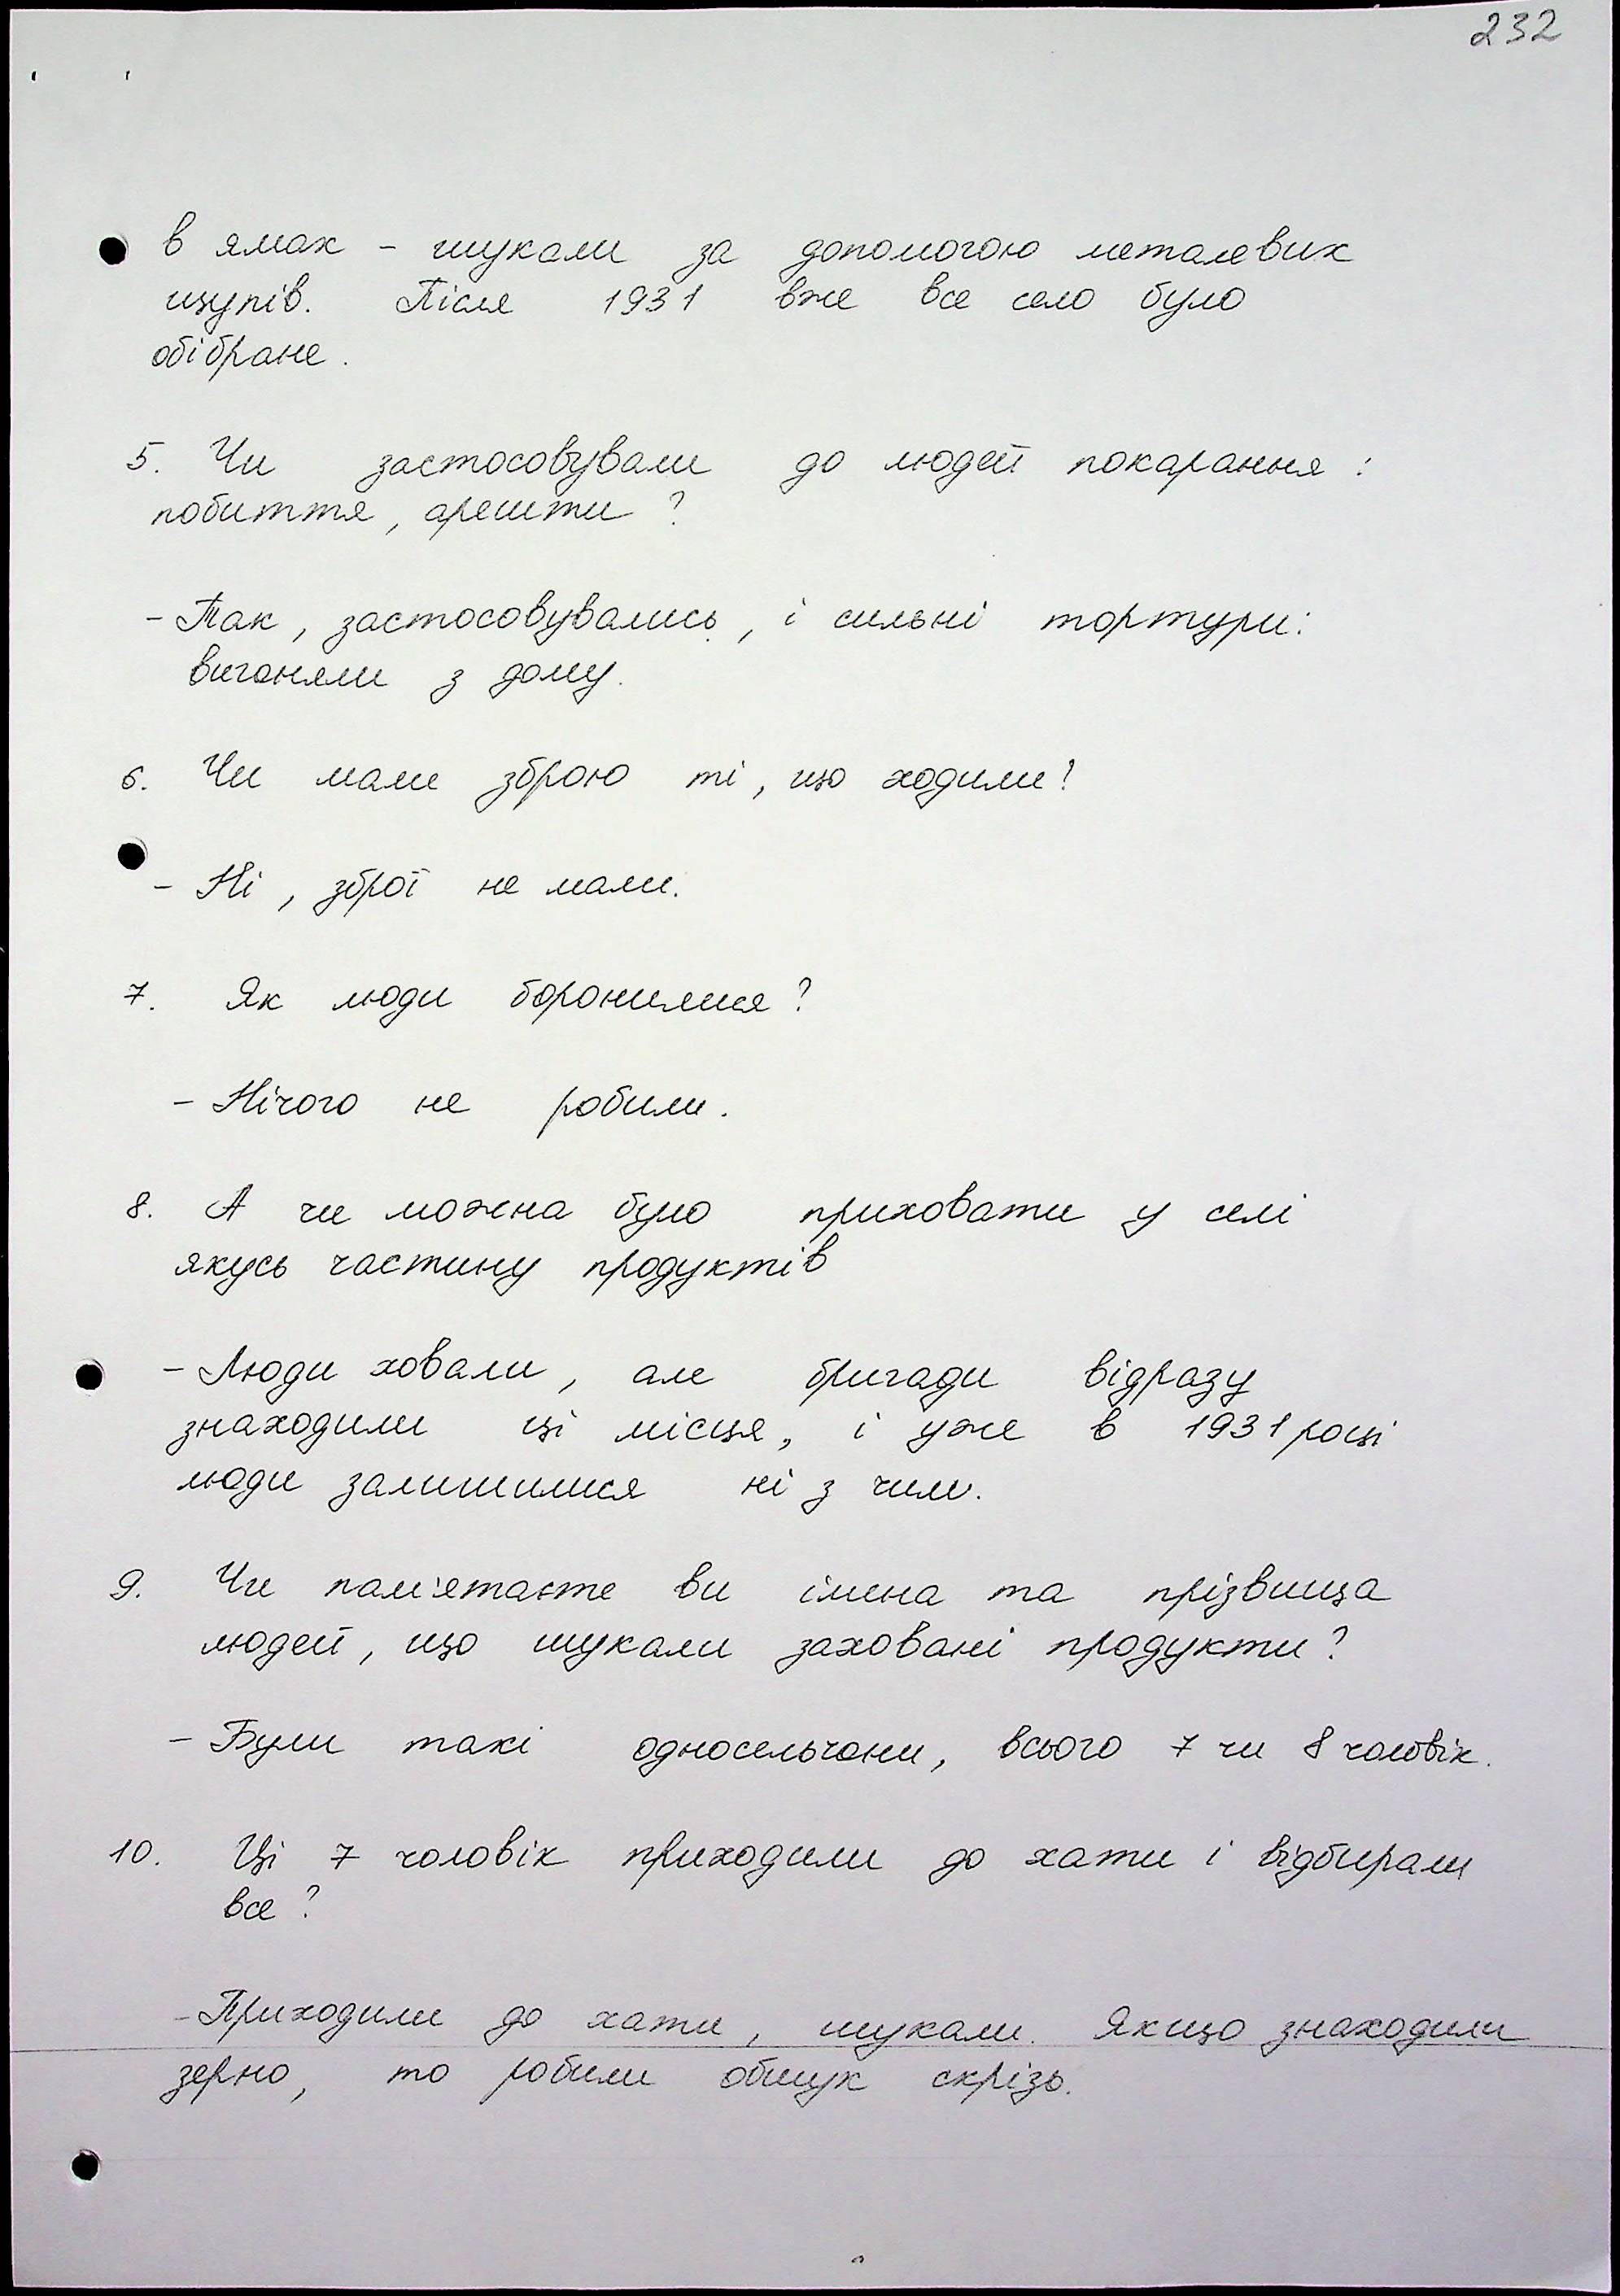 232
в ямах - шукали за допомогою металевих
щупів. Після 1931 вже все село було
обібране.
5. Чи застосовували до людей покарання:
побиття, арешти?
- Так, застосовувались, і сильні тортури:
виганяли з дому.
6. Чи мали зброю ті, що ходили?
- Ні, зброї не мали.
7. Як люди боронилися?
- Нічого не робили.
8. А чи можна було приховати у селі
якусь частину продуктів
- Люди ховали, але бригади відразу
знаходили ці місця, і уже в 1931 році
люди залишилися ні з чим.
9. Чи пам'ятаєте ви імена та прізвища
людей, що шукали заховані продукти?
- Були такі односельчани, всього 7 чи 8 чоловік.
10. Ці 7 чоловік приходили до хати і відбирали
все?
- Приходили до хати, шукали. Якщо знаходили
зерно, то робили обшук скрізь.